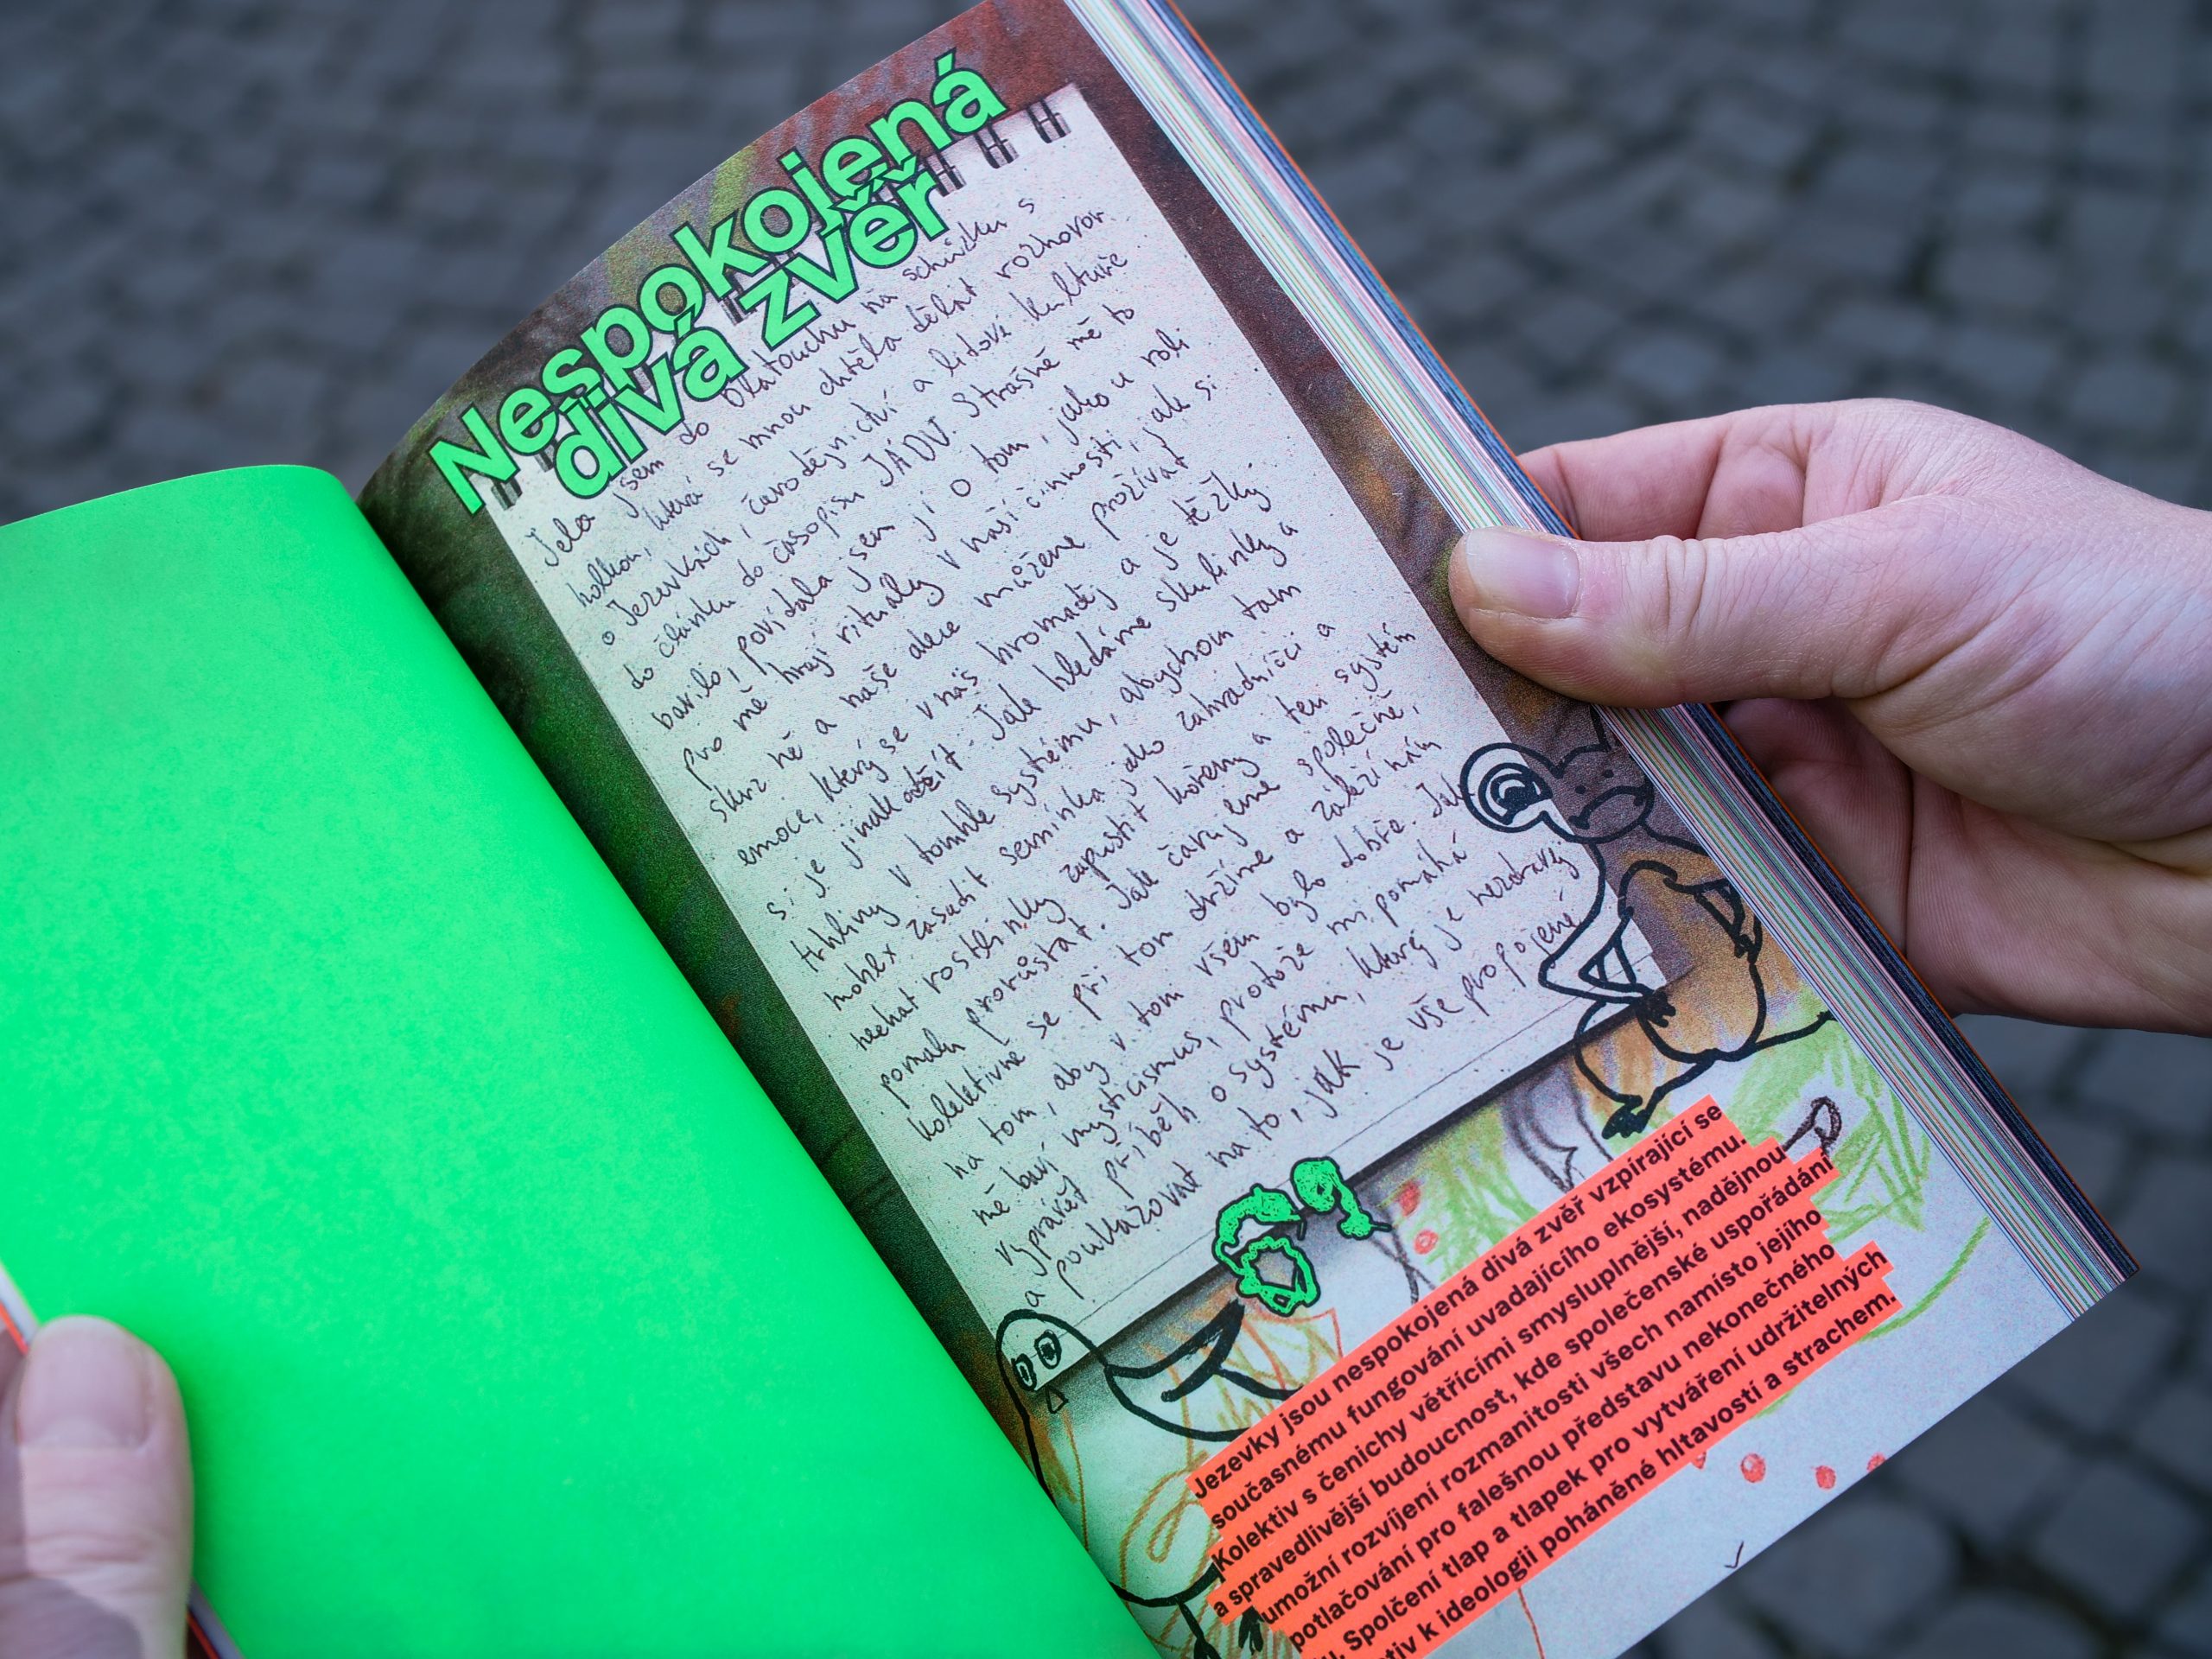 Nespokojená
divá zvěř
Jela jsem do Blatouchu na schůzku s
holkou, která se mnou chtěla dělat rozhovor
o Jezevkách, čarodějnictví a lidové kultuře
do článku do časopisu JÁDU. Strašně mě to
bavilo, povídala jsem jí o tom, jakou roli
pro mě hrají rituály v naší činnosti, jak si
skrz ně a naše akce můžeme prožívat
emoce, který se v nás hromaděj a je těžký
si je jinak odžít. Jak hledáme skulinky a
trhliny v tomhle systému, abychom tam
mohly zasadit semínka jako zahradníci a
nechat rostlinky zapustit kořeny a ten systém
pomalu prorůstat. Jak čarujeme společně,
kolektivně se při tom držíme a záleží nám
na tom, aby v tom všem bylo dobře. Jak
mě baví mysticismus, protože mi pomáhá
vyprávět příběh o systému, který je nezdravej
a poukazovat na to, jak je vše propojené
Jezevky jsou nespokojená divá zvěř vzpírající se
současnému fungování uvadajícího ekosystému.
Kolektiv s čenichy větřícími smysluplnější, nadějnou
a spravedlivější budoucnost, kde společenské uspořádání
umožní rozvíjení rozmanitosti všech namisto jejího
potlačování pro falešnou představu nekonečného
Spolčení tlap a tlapek pro vytváření udržitelných
k ideologii poháněné hltavostí a strachem.